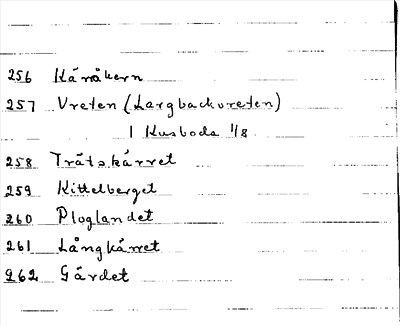 256 Käråkern
257 Vreten (Largbackvreten)
1 Kusboda 1/8
258 Trätskärret
259 Kittelberget
260 Ploglandet
261 Långkärret
262 Gärdet